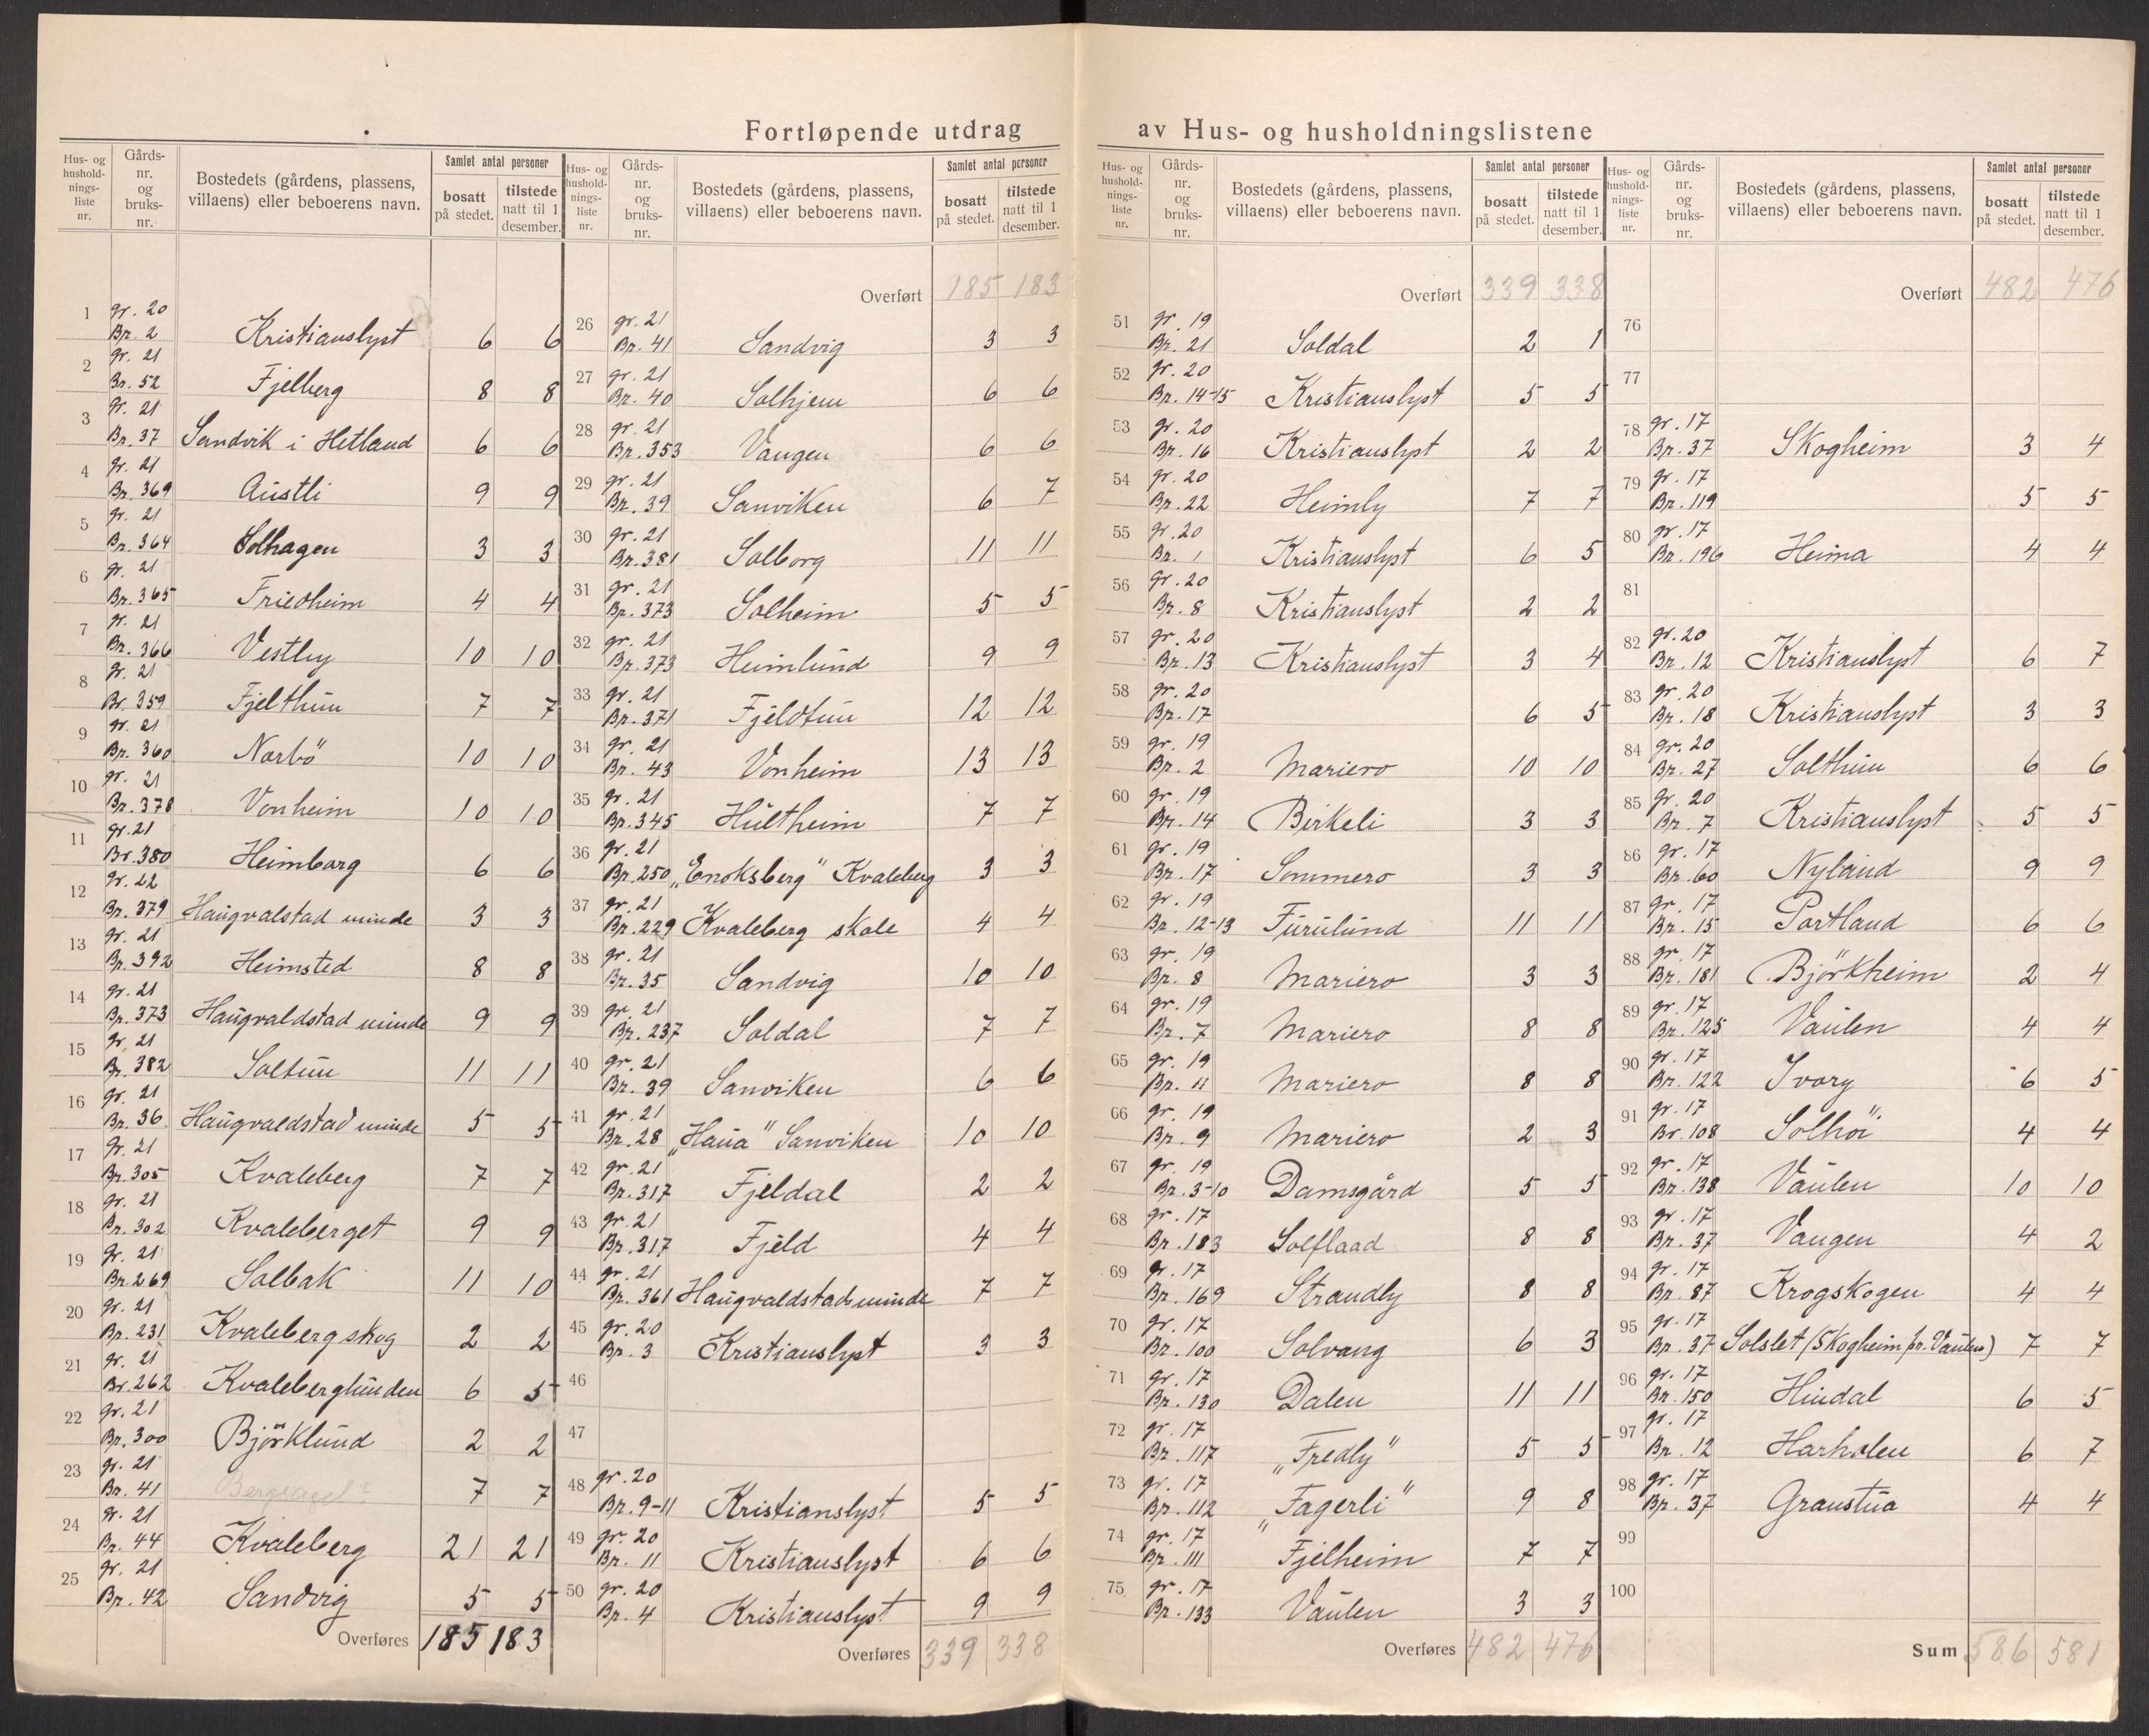 Fortløpende utdrag av Hus- og husholdningslistene
Hus- og husholdningsliste nr. | Gårds-nr. og bruks-nr. | Bostedets (gårdens, plassens, villaens) eller beboerens navn. | Samlet antal personer | bosatt på stedet. | tilstede natt til 1 desember.
1 gr. 20 Br. 2 Kristianslyst 6 6
2 gr. 21 Br. 52 Fjelberg 8 8
3 gr. 21 Br. 37 Sandvik i Hetland 6 6
4 gr. 21 Br. 369 Austli 9 9
5 gr. 21 Br. 364 Solhagen 3 3
6 gr. 21 Br. 365 Friedheim 4 4
7 gr. 21 Br. 366 Vestby 10 10
8 gr. 21 Br. 359 Fjelthun 7 7
9 gr. 21 Br. 360 Norbö 10 10
10 gr. 21 Br. 378 Vonheim 10 10
11 gr. 21 Br. 380 Heimborg 6 6
12 gr. 22 Br. 379 Haugvalstad minde 3 3
13 gr. 21 Br. 392 Heimsted 8 8
14 gr. 21 Br. 373 Haugvaldstad minde 9 9
15 gr. 21 Br. 382 Soltun 11 11
16 gr. 21 Br. 36 Haugvaldstad minde 5 5
17 gr. 21 Br. 305 Kvaleberg 7 7
18 gr. 21 Br. 302 Kvaleberget 9 9
19 gr. 21 Br. 269 Solbak 11 10
20 gr. 21 Br. 231 Kvaleberg skog 2 2
21 gr. 21 Br. 262 Kvaleberglunden 6 5
22 gr. 21 Br. 300 Björklund 2 2
23 gr. 21 Br. 41 Bergsagel? 7 7
24 gr. 21 Br. 44 Kvaleberg 21 21
25 gr. 21 Br. 42 Sandvig 5 5
Overføres 185 183
Hus- og husholdningsliste nr. | Gårds-nr. og bruks-nr. | Bostedets (gårdens, plassens, villaens) eller beboerens navn. | Samlet antal personer | bosatt på stedet. | tilstede natt til 1 desember.
Overført 185 183
26 gr. 21 Br. 41 Sandvig 3 3
27 gr. 21 Br. 40 Solhjem 6 6
28 gr. 21 Br. 353 Vangen 6 6
29 gr. 21 Br. 39 Sanviken 6 7
30 gr. 21 Br. 381 Solborg 11 11
31 gr. 21 Br. 373 Solheim 5 5
32 gr. 21 Br. 373 Heimlund 9 9
33 gr. 21 Br. 371 Fjeldtun 12 12
34 gr. 21 Br. 43 Vonheim 13 13
35 gr. 21 Br. 345 Hultheim 7 7
36 gr. 21 Br. 250 „Enoksberg" Kvaleberg 3 3
37 gr. 21 Br. 229 Kvaleberg skole 4 4
38 gr. 21 Br. 35 Sandvig 10 10
39 gr. 21 Br. 237 Soldal 7 7
40 gr. 21 Br. 39 Sanviken 6 6
41 gr. 21 Br. 28 „Haua" Sanviken 10 10
42 gr. 21 Br. 317 Fjeldal 2 2
43 gr. 21 Br. 317 Fjeld 4 4
44 gr. 21 Br. 361 Haugvaldstadsminde 7 7
45 gr. 20 Br. 3 Kristianslyst 3 3
46
47
48 gr. 20 Br. 9-11 Kristianslyst 5 5
49 gr. 20 Br. 11 Kristianslyst 6 6
50 gr. 20 Br. 4 Kristianslyst 9 9
Overføres 339 338
Hus- og husholdningsliste nr. | Gårds-nr. og bruks-nr. | Bostedets (gårdens, plassens, villaens) eller beboerens navn. | Samlet antal personer | bosatt på stedet. | tilstede natt til 1 desember.
Overført 339 338
51 gr. 19 Br. 21 Soldal 2 1
52 gr. 20 Br. 14-15 Kristianslyst 5 5
53 gr. 20 Br. 16 Kristianslyst 2 2
54 gr. 20 Br. 22 Heimly 7 7
55 gr. 20 Br. 1 Kristianslyst 6 5
56 gr. 20 Br. 8 Kristianslyst 2 2
57 gr. 20 Br. 13 Kristianslyst 3 4
58 gr. 20 Br. 17 6 5
59 gr. 19 Br. 2 Mariero 10 10
60 gr. 19 Br. 14 Birkeli 3 3
61 gr. 19 Br. 17 Sommero 3 3
62 gr. 19 Br. 12-13 Furulund 11 11
63 gr. 19 Br. 8 Mariero 3 3
64 gr. 19 Br. 7 Mariero 8 8
65 gr. 19 Br. 11 Mariero 8 8
66 gr. 19 Br. 9 Mariero 2 3
67 gr. 19 Br. 3-10 Damsgård 5 5
68 gr. 17 Br. 183 Solflaad 8 8
69 gr. 17 Br. 169 Strandly 8 8
70 gr. 17 Br. 100 Solvang 6 3
71 gr. 17 Br. 130 Dalen 11 11
72 gr. 17 Br. 117 „Fredly" 5 5
73 gr. 17 Br. 112 „Fagerli" 9 8
74 gr. 17 Br. 111 Fjelheim 7 7
75 gr. 17 Br. 133 Vaulen 3 3
Overføres 482 476
Hus- og husholdningsliste nr. | Gårds-nr. og bruks-nr. | Bostedets (gårdens, plassens, villaens) eller beboerens navn. | Samlet antal personer | bosatt på stedet. | tilstede natt til 1 desember.
Overført 482 476
76
77
78 gr. 17 Br. 37 Skogheim 3 4
79 gr. 17 Br. 119 5 5
80 gr. 17 Br. 196 Heima 4 4
81
82 gr. 20 Br. 12 Kristianslyst 6 7
83 gr. 20 Br. 18 Kristianslyst 3 3
84 gr. 20 Br. 27 Solthun 6 6
85 gr. 20 Br. 7 Kristianslyst 5 5
86 gr. 17 Br. 60 Nyland 9 9
87 gr. 17 Br. 15 Portland 6 6
88 gr. 17 Br. 181 Björkheim 2 4
89 gr. 17 Br. 125 Vaulen 4 4
90 gr. 17 Br. 122 Ivory 6 5
91 gr. 17 Br. 108 Solhöi 4 4
92 gr. 17 Br. 138 Vaulen 10 10
93 gr. 17 Br. 37 Vangen 4 2
94 gr. 17 Br. 87 Krogskogen 4 4
95 gr. 17 Br. 37 Solslet (Skogheim pr. Vaulen) 7 7
96 gr. 17 Br. 150 Hindal 6 5
97 gr. 17 Br. 12 Harholen 6 7
98 gr. 17 Br. 37 Granstua 4 4
99
100
Sum 586 581